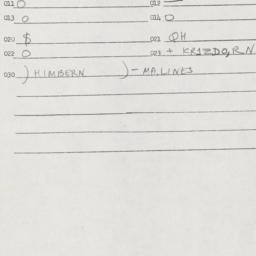 011 O 012
013 O 014 O
020 $ 021 QH
022 O 023 + KRIZDO, R.N
030 ) HIMBERN ) - MA. LINES